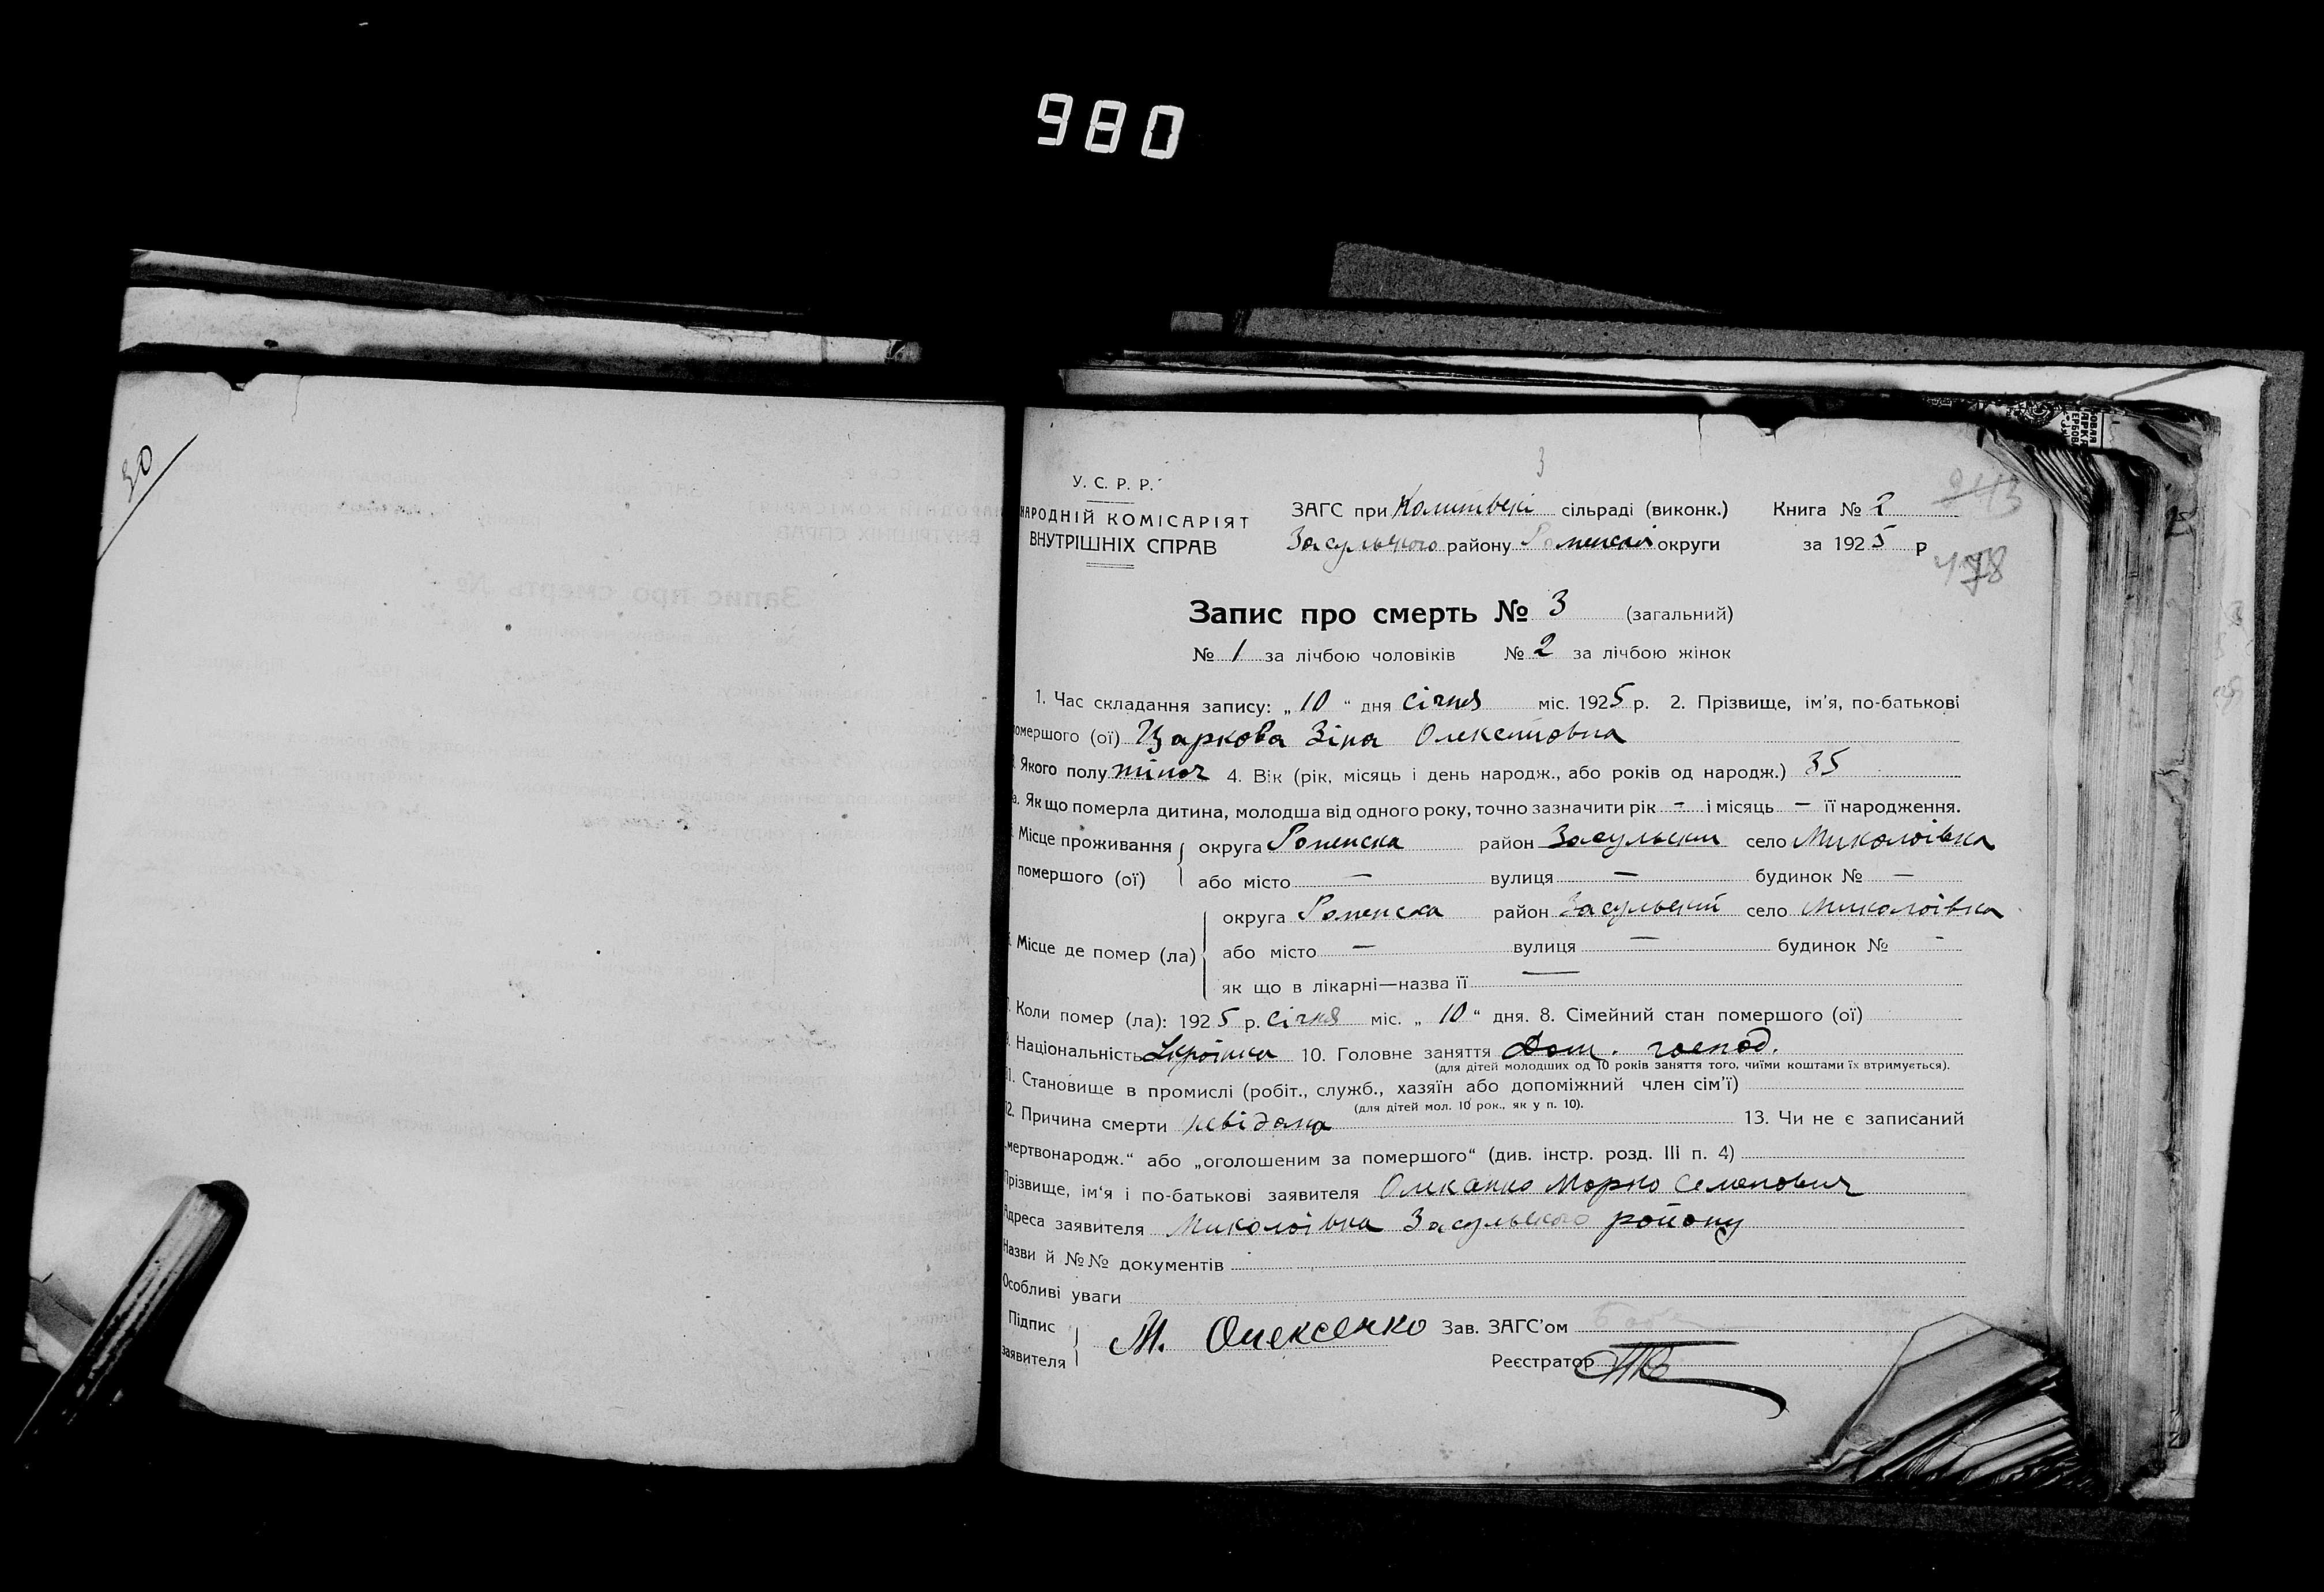 980
30
3
У. С. Р. Р.
НАРОДНІЙ КОМІСАРІЯТ
ВНУТРІШНІХ СПРАВ
243
ЗАГС при сільраді (виконк.) Книга № 2
Засульского району Роменской округи за 1925 р
478
Запис про смерть № 3 (загальний)
№ 1 за лічбою чоловіків № 2 за лічбою жінок
1. Час складання запису: „ 10 “ дня січня міс. 1925 р. 2. Прізвище, ім'я, по-батькові
помершого (ої) Царкова Зіна
Якого полу жіноч 4. Вік (рік, місяць і день народж., або років од народж.) 35
а. Як що померла дитина, молодша від одного року, точно зазначити рік - і місяць - її народження.
Місце проживання округа Роменска район Засульский село Миколоівка
помершого (ої) або місто — вулиця — будинок № —
округа Роменска район Засульский село Миколоівка
Місце де помер (ла) або місто — вулиця — будинок № -
як що в лікарні—назва її —
Коли помер (ла): 1925 р. січня міс. „ 10 “ дня. 8. Сімейний стан помершого (ої)
Національність Українка 10. Головне заняття Дом. господ.
(для дітей молодших од 10 років заняття того, чиїми коштами їх втримується).
11. Становище в промислі (робіт., служб., хазяїн або допоміжний член сім'ї)
(для дітей мол. 10 рок., як у п. 10).
12. Причина смерти невідома 13. Чи не є записаний
„мертвонародж.“ або „оголошеним за помершого“ (див. інстр. розд. III п. 4)
Прізвище, ім'я і по-батькові заявителя Марко Семенович
Адреса заявителя Миколоівка Засульского району
Назви й №№ документів
Особливі уваги
Підпис
заявителя М. Олексенко Зав. ЗАГС'ом
Реєстратор